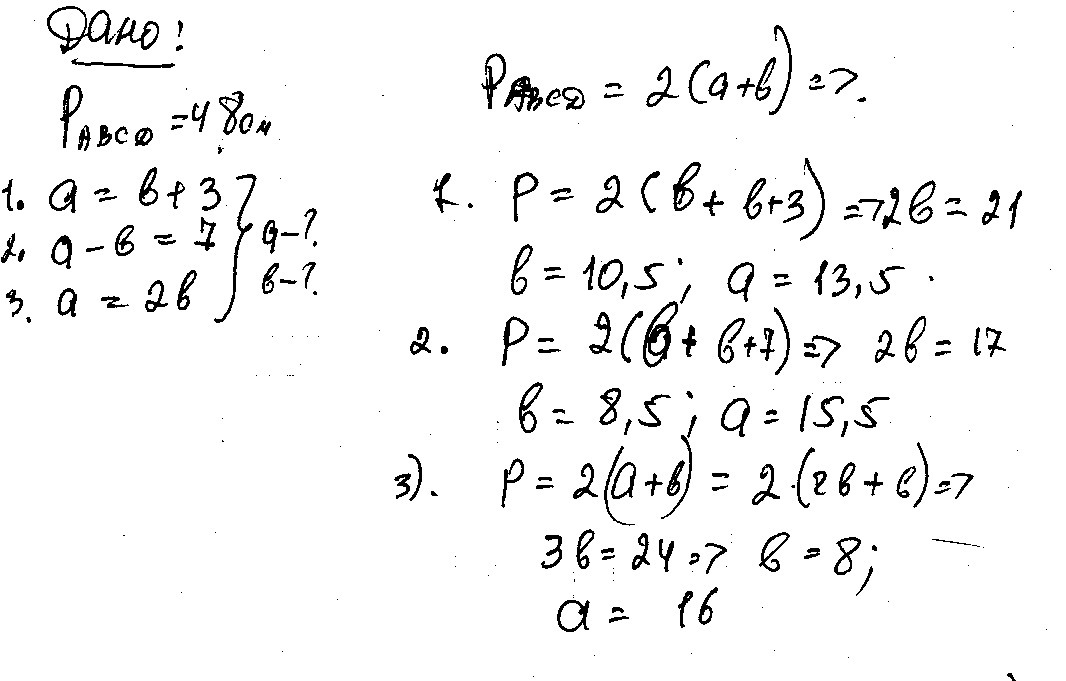 Дано!
P_ABCD = 48см
1. a = b + 3
2. a - b = 7
3. a = 2b
a - ?
b - ?
P_ABCD = 2(a+b) =>.
1. P = 2(b + b+3) => 2b = 21
b = 10,5; a = 13,5.
2. P = 2(b + b+7) => 2b = 17
b = 8,5; a = 15,5
3). P = 2(a+b) = 2·(2b + b) =>
3b = 24 => b = 8;
a = 16